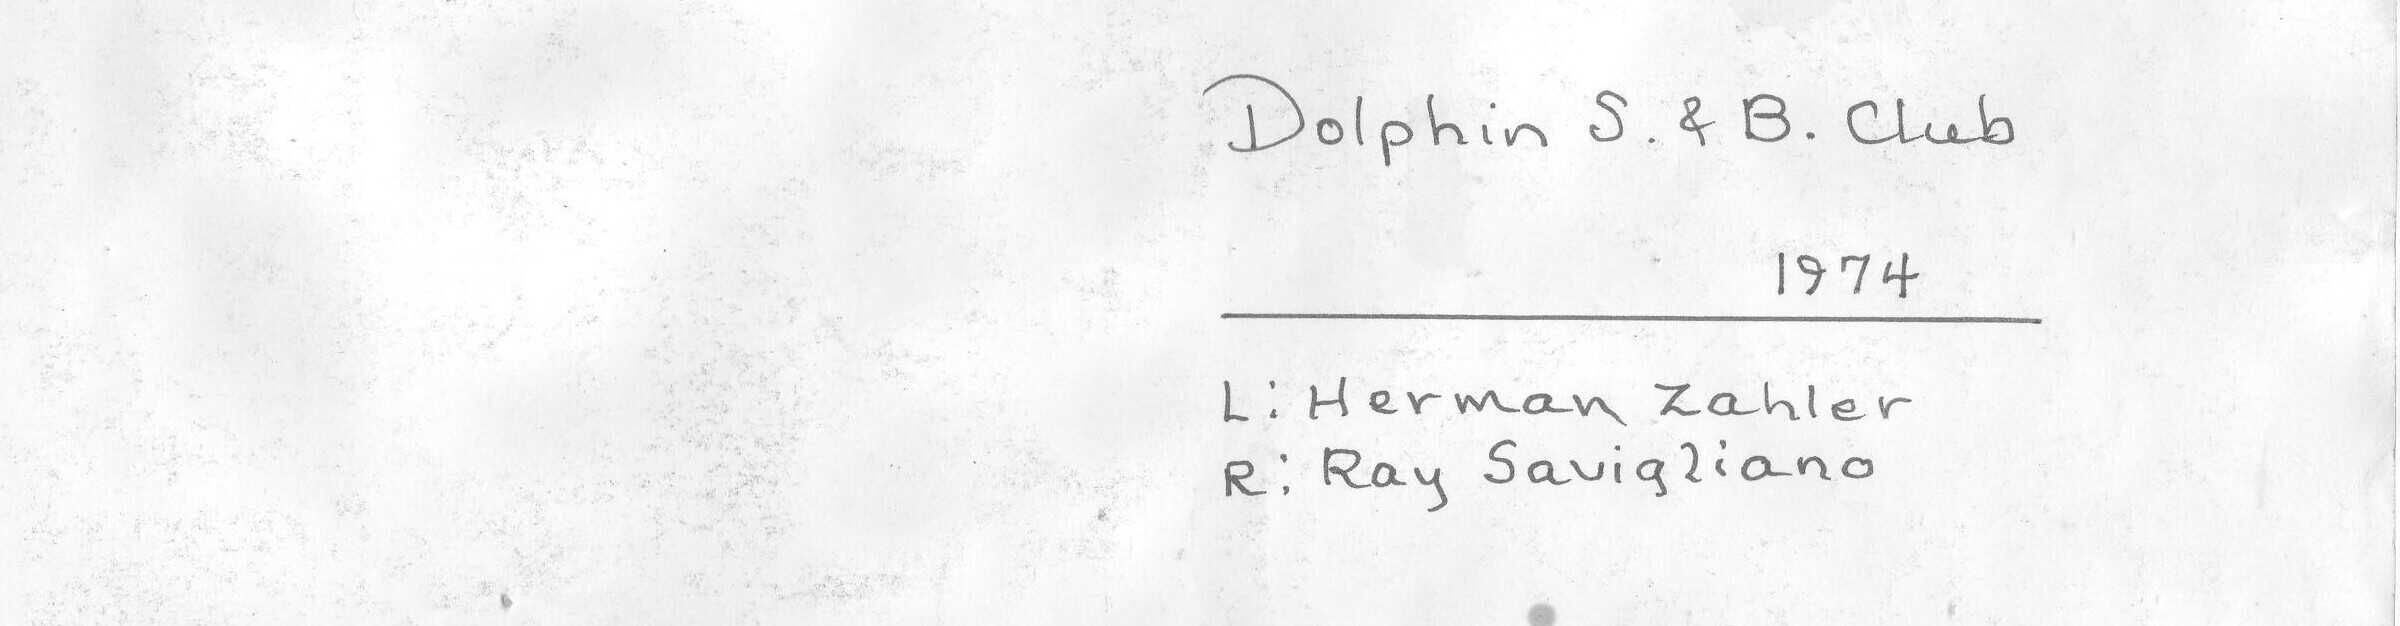 Dolphin S. & B. Club
1974
L: Herman Zahler
R: Ray Savigliano